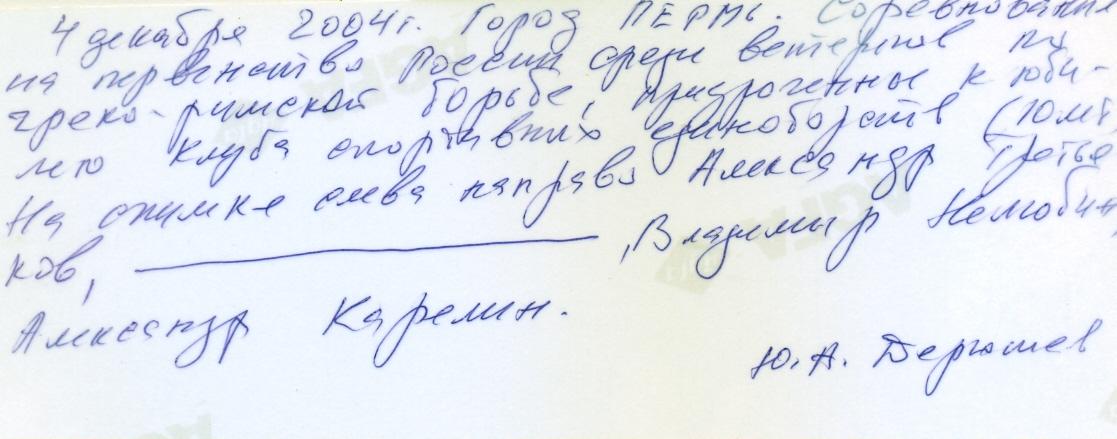 4 декабря 2004г. Город ПЕРМЬ. Соревнования
на первенство России среди ветеранов по
греко-римской борьбе, приуроченные к юби-
лею клуба спортивных единоборств (10лет
На снимке слева направо Александр Третья
ков, , Владимир Нелюбин,
Александр Карелин.
Ю.А. Дерюшев